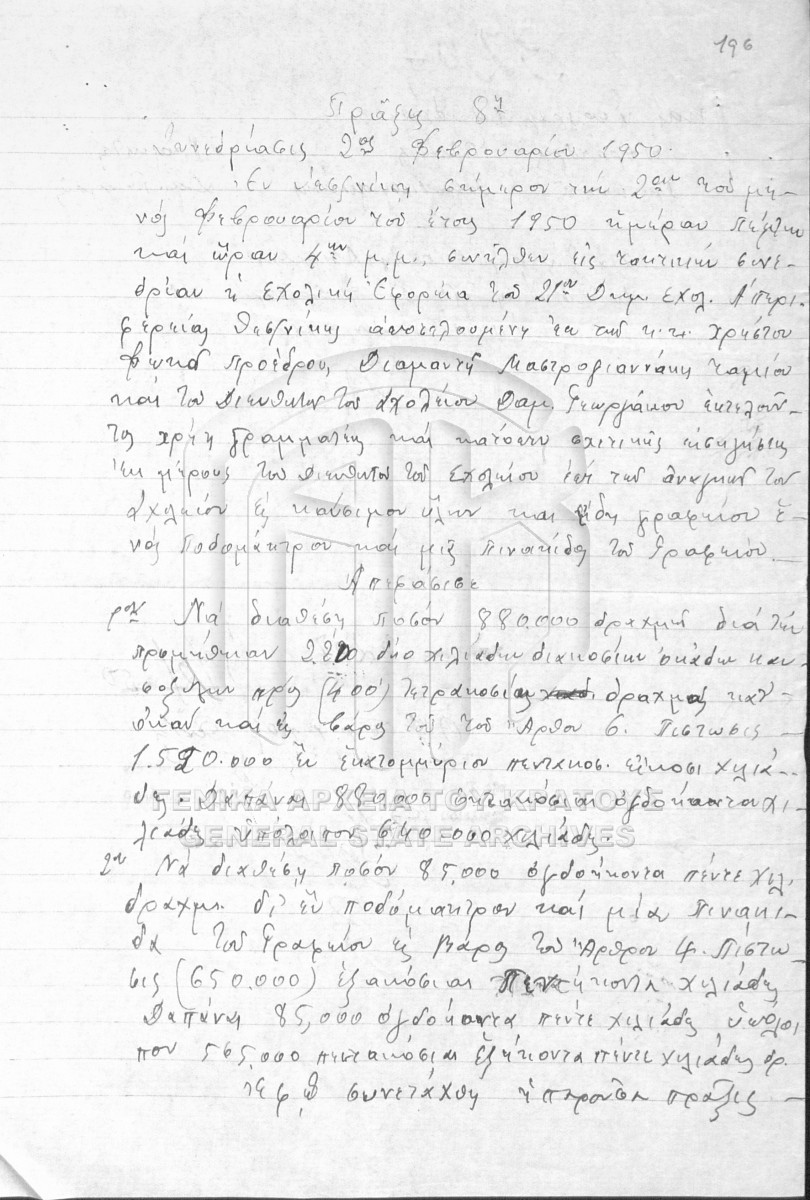 196
Πρᾶξις 8η
Συνεδρίασις 2ας Φεβρουαρίου 1950.
Ἐν Θεσ/νίκῃ σήμερον τὴν 2αν τοῦ μη-
νὸς Φεβρουαρίου τοῦ ἔτους 1950 ἡμέραν Πέμπτην
καὶ ὥραν 4ην μ.μ. συνῆλθεν εἰς τακτικὴν συνε-
δρίαν ἡ Σχολικὴ Ἐφορεία τοῦ 21ου Δημ. Σχολ. Α΄ περι-
φερείας Θεσ/νίκης ἀποτελουμένη ἐκ τῶν κ.κ. Χρήστου
Φωκᾶ Προέδρου, Διαμαντῆ Μαστρογιαννάκη ταμίου
καὶ τοῦ Διευθυντοῦ τοῦ Σχολείου Δαμ. Γεωργάκου ἐκτελοῦν-
τος χρέη Γραμματέως καὶ κατόπιν σχετικῆς εἰσηγήσεως
ἐκ μέρους τοῦ Διευθυντοῦ τοῦ Σχολείου ἐπὶ τῶν ἀναγκῶν τοῦ
Σχολείου εἰς καύσιμον ὕλην καὶ εἴδη γραφείου ἑ-
νὸς ποδομάκτρου καὶ μιᾶς πινακίδος τοῦ Γραφείου.
Ἀπεφάσισε
1ον Νὰ διαθέσῃ ποσὸν 880.000 δραχμῶν διὰ τὴν
προμήθειαν 2.200 δύο χιλιάδων διακοσίων ὀκάδων καυ-
σοξύλων πρὸς (400) τετρακοσίας δραχμὰς κατ'
ὀκᾶν καὶ εἰς βάρος τοῦ τοῦ Ἄρθρου 6. Πίστωσις
1.520.000 ἓν ἑκατομμύριον πεντακοσ. εἴκοσι χιλιά-
δες. Δαπάνη 880.000 ὀκτακόσιαι ὀγδοήκοντα χι-
λιάδες ὑπόλοιπον 640.000 χιλιάδες.
2ον Νὰ διαθέσῃ ποσὸν 85.000 ὀγδοήκοντα πέντε χιλ.
δραχμ. δι' ἓν ποδόμακτρον καὶ μίαν Πινακί-
δα τοῦ Γραφείου εἰς βάρος τοῦ Ἄρθρου 4. Πίστω-
σις (650.000) ἑξακόσιαι Πεντήκοντα χιλιάδες
Δαπάνη 85,000 ὀγδοήκοντα πέντε χιλιάδες ὑπόλοι
πον 565,000 πεντακόσιαι ἑξήκοντα πέντε χιλιάδες δρ.
Ἐφ' ᾧ συνετάχθη ἡ παροῦσα πρᾶξις
ΓΕΝΙΚΑ ΑΡΧΕΙΑ ΤΟΥ ΚΡΑΤΟΥΣ
GENERAL STATE ARCHIVES